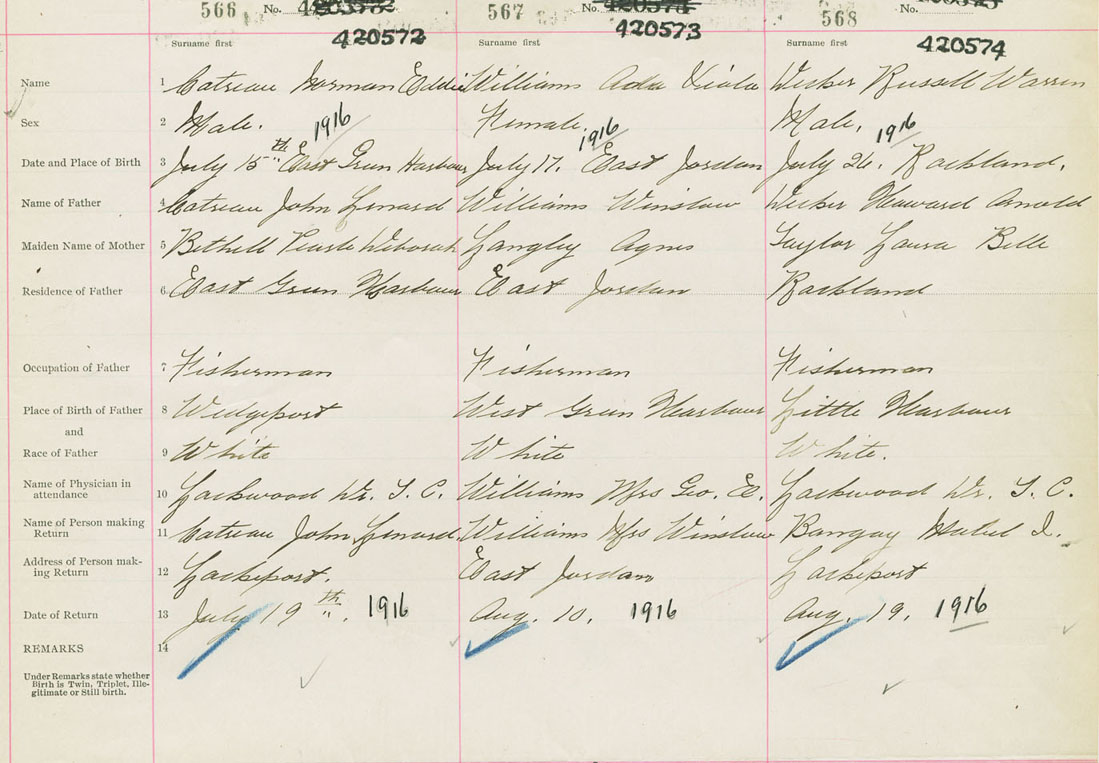 566 No. 567 No. 568 No.
420572 420573 420574
Surname first Surname first Surname first
Name 1 Cotreau Norman Eddie Williams Ada Viola Decker Russell Warren
Sex 2 Male. Female. Male.
1916 1916 1916
Date and Place of Birth 3 July 15th East Green Harbour July 17. East Jordan July 26. Rockland.
Name of Father 4 Cotreau John Lenard Williams Winslow Decker Howard Arnold
Maiden Name of Mother 5 Bethell Pearle Deborah Langley Agnes Taylor Laura Belle
Residence of Father 6 East Green Harbour East Jordan Rockland
Occupation of Father 7 Fisherman Fisherman Fisherman
Place of Birth of Father 8 Wedgeport West Green Harbour Little Harbour
and
Race of Father 9 White White White.
Name of Physician in
attendance 10 Lockwood Dr. T. C. Williams Mrs Geo. E. Lockwood Dr. T. C.
Name of Person making
Return 11 Cotreau John Lenard. Williams Mrs Winslow Bangay Mabel I.
Address of Person mak-
ing Return 12 Lockeport. East Jordan Lockeport
Date of Return 13 July 19th. 1916 Aug. 10. 1916 Aug. 19. 1916
REMARKS 14
Under Remarks state whether
Birth is Twin, Triplet, Ille-
gitimate or Still birth.